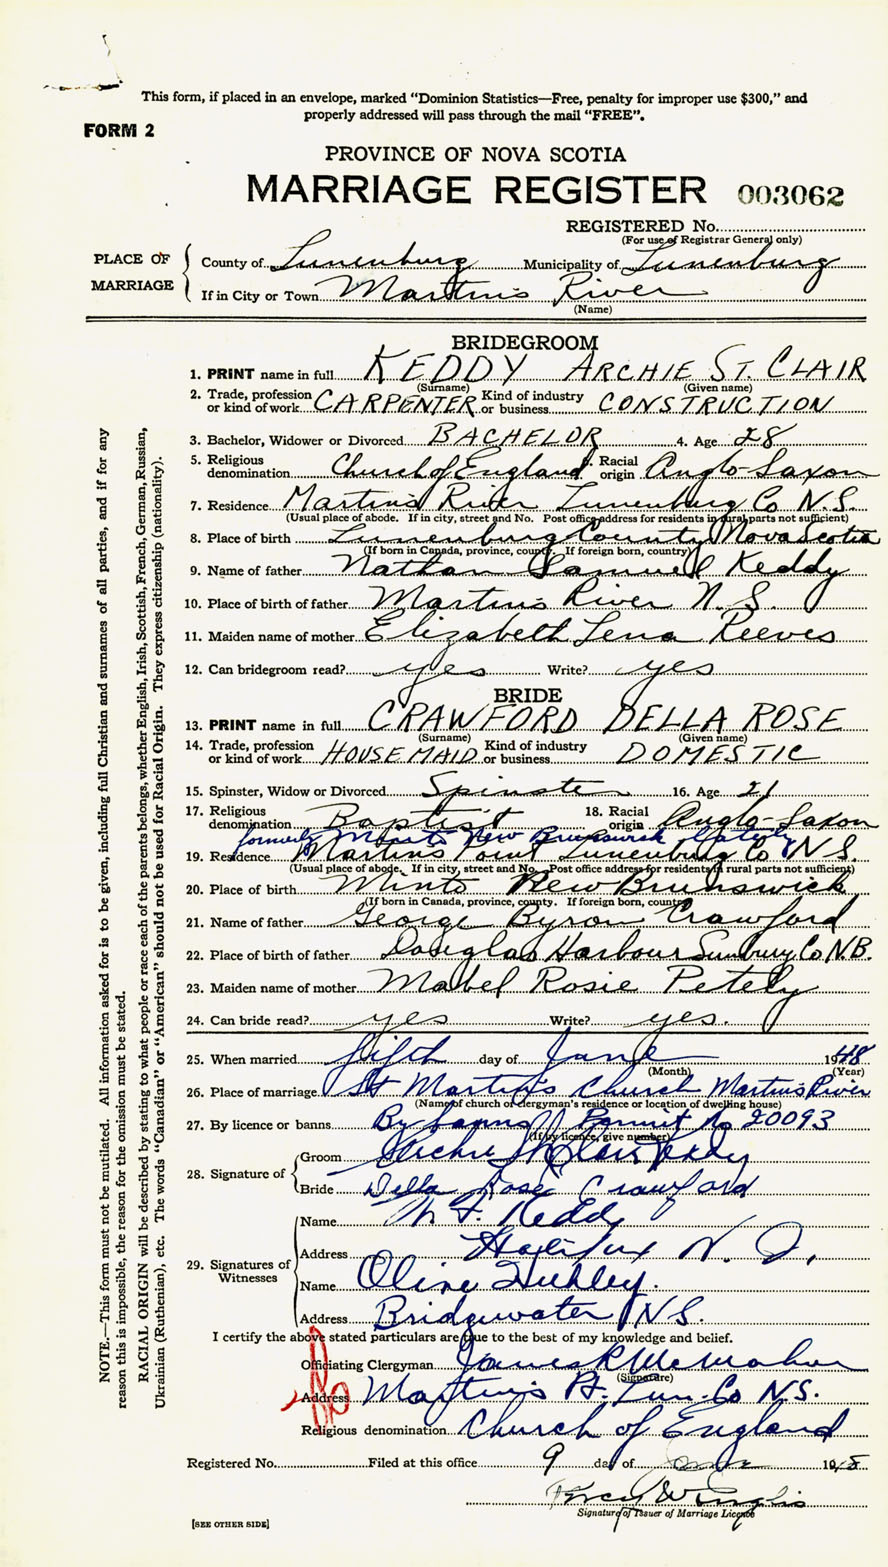 This form, if placed in an envelope, marked "Dominion Statistics—Free, penalty for improper use $300," and
properly addressed will pass through the mail "FREE".
FORM 2
PROVINCE OF NOVA SCOTIA
MARRIAGE REGISTER 003062
REGISTERED No.
(For use of Registrar General only)
PLACE OF MARRIAGE
County of Lunenburg Municipality of Lunenburg
If in City or Town Martins River
(Name)
BRIDEGROOM
1. PRINT name in full KEDDY ARCHIE ST. CLAIR
(Surname) (Given name)
2. Trade, profession or kind of work CARPENTER Kind of industry or business CONSTRUCTION
3. Bachelor, Widower or Divorced BACHELOR 4. Age 28
5. Religious denomination Church of England 6. Racial origin Anglo-Saxon
7. Residence Martins River Lunenburg Co N.S.
(Usual place of abode. If in city, street and No. Post office address for residents in rural parts not sufficient)
8. Place of birth Lunenburg County Nova Scotia
(If born in Canada, province, county. If foreign born, country)
9. Name of father Nathan Samuel Keddy
10. Place of birth of father Martins River N.S.
11. Maiden name of mother Elizabeth Lena Reeves
12. Can bridegroom read? yes Write? yes
BRIDE
13. PRINT name in full CRAWFORD DELLA ROSE
(Surname) (Given name)
14. Trade, profession or kind of work HOUSEMAID Kind of industry or business DOMESTIC
15. Spinster, Widow or Divorced Spinster 16. Age 21
17. Religious denomination Baptist 18. Racial origin Anglo-Saxon
formerly Minto New Brunswick lately
19. Residence Martins Point Lunenburg Co N.S.
(Usual place of abode. If in city, street and No. Post office address for residents in rural parts not sufficient)
20. Place of birth Minto New Brunswick
(If born in Canada, province, county. If foreign born, country)
21. Name of father George Byron Crawford
22. Place of birth of father Douglas Harbour Sunbury Co N.B.
23. Maiden name of mother Mabel Rosie Petely
24. Can bride read? yes Write? yes.
25. When married fifth day of June 1948
(Month) (Year)
26. Place of marriage St Martin's Church Martins River
(Name of church or clergyman's residence or location of dwelling house)
27. By licence or banns By banns Permit No 20093
(If by licence, give number)
28. Signature of
Groom Archie St Clair Keddy
Bride Della Rose Crawford
29. Signatures of Witnesses
Name Keddy
Address Halifax N.S.
Name Olive
Address Bridgewater N.S.
I certify the above stated particulars are true to the best of my knowledge and belief.
Officiating Clergyman James R McMahon
(Signature)
Address Martin's Pt. Lun. Co N.S.
Religious denomination Church of England
Registered No. Filed at this office 9 day of June 1948
Signature of Issuer of Marriage Licence
[SEE OTHER SIDE]
NOTE.—This form must not be mutilated. All information asked for is to be given, including full Christian and surnames of all parties, and if for any
reason this is impossible, the reason for the omission must be stated.
RACIAL ORIGIN will be described by stating to what people or race each of the parents belongs, whether English, Irish, Scottish, French, German, Russian,
Ukrainian (Ruthenian), etc. The words "Canadian" or "American" should not be used for Racial Origin. They express citizenship (nationality).